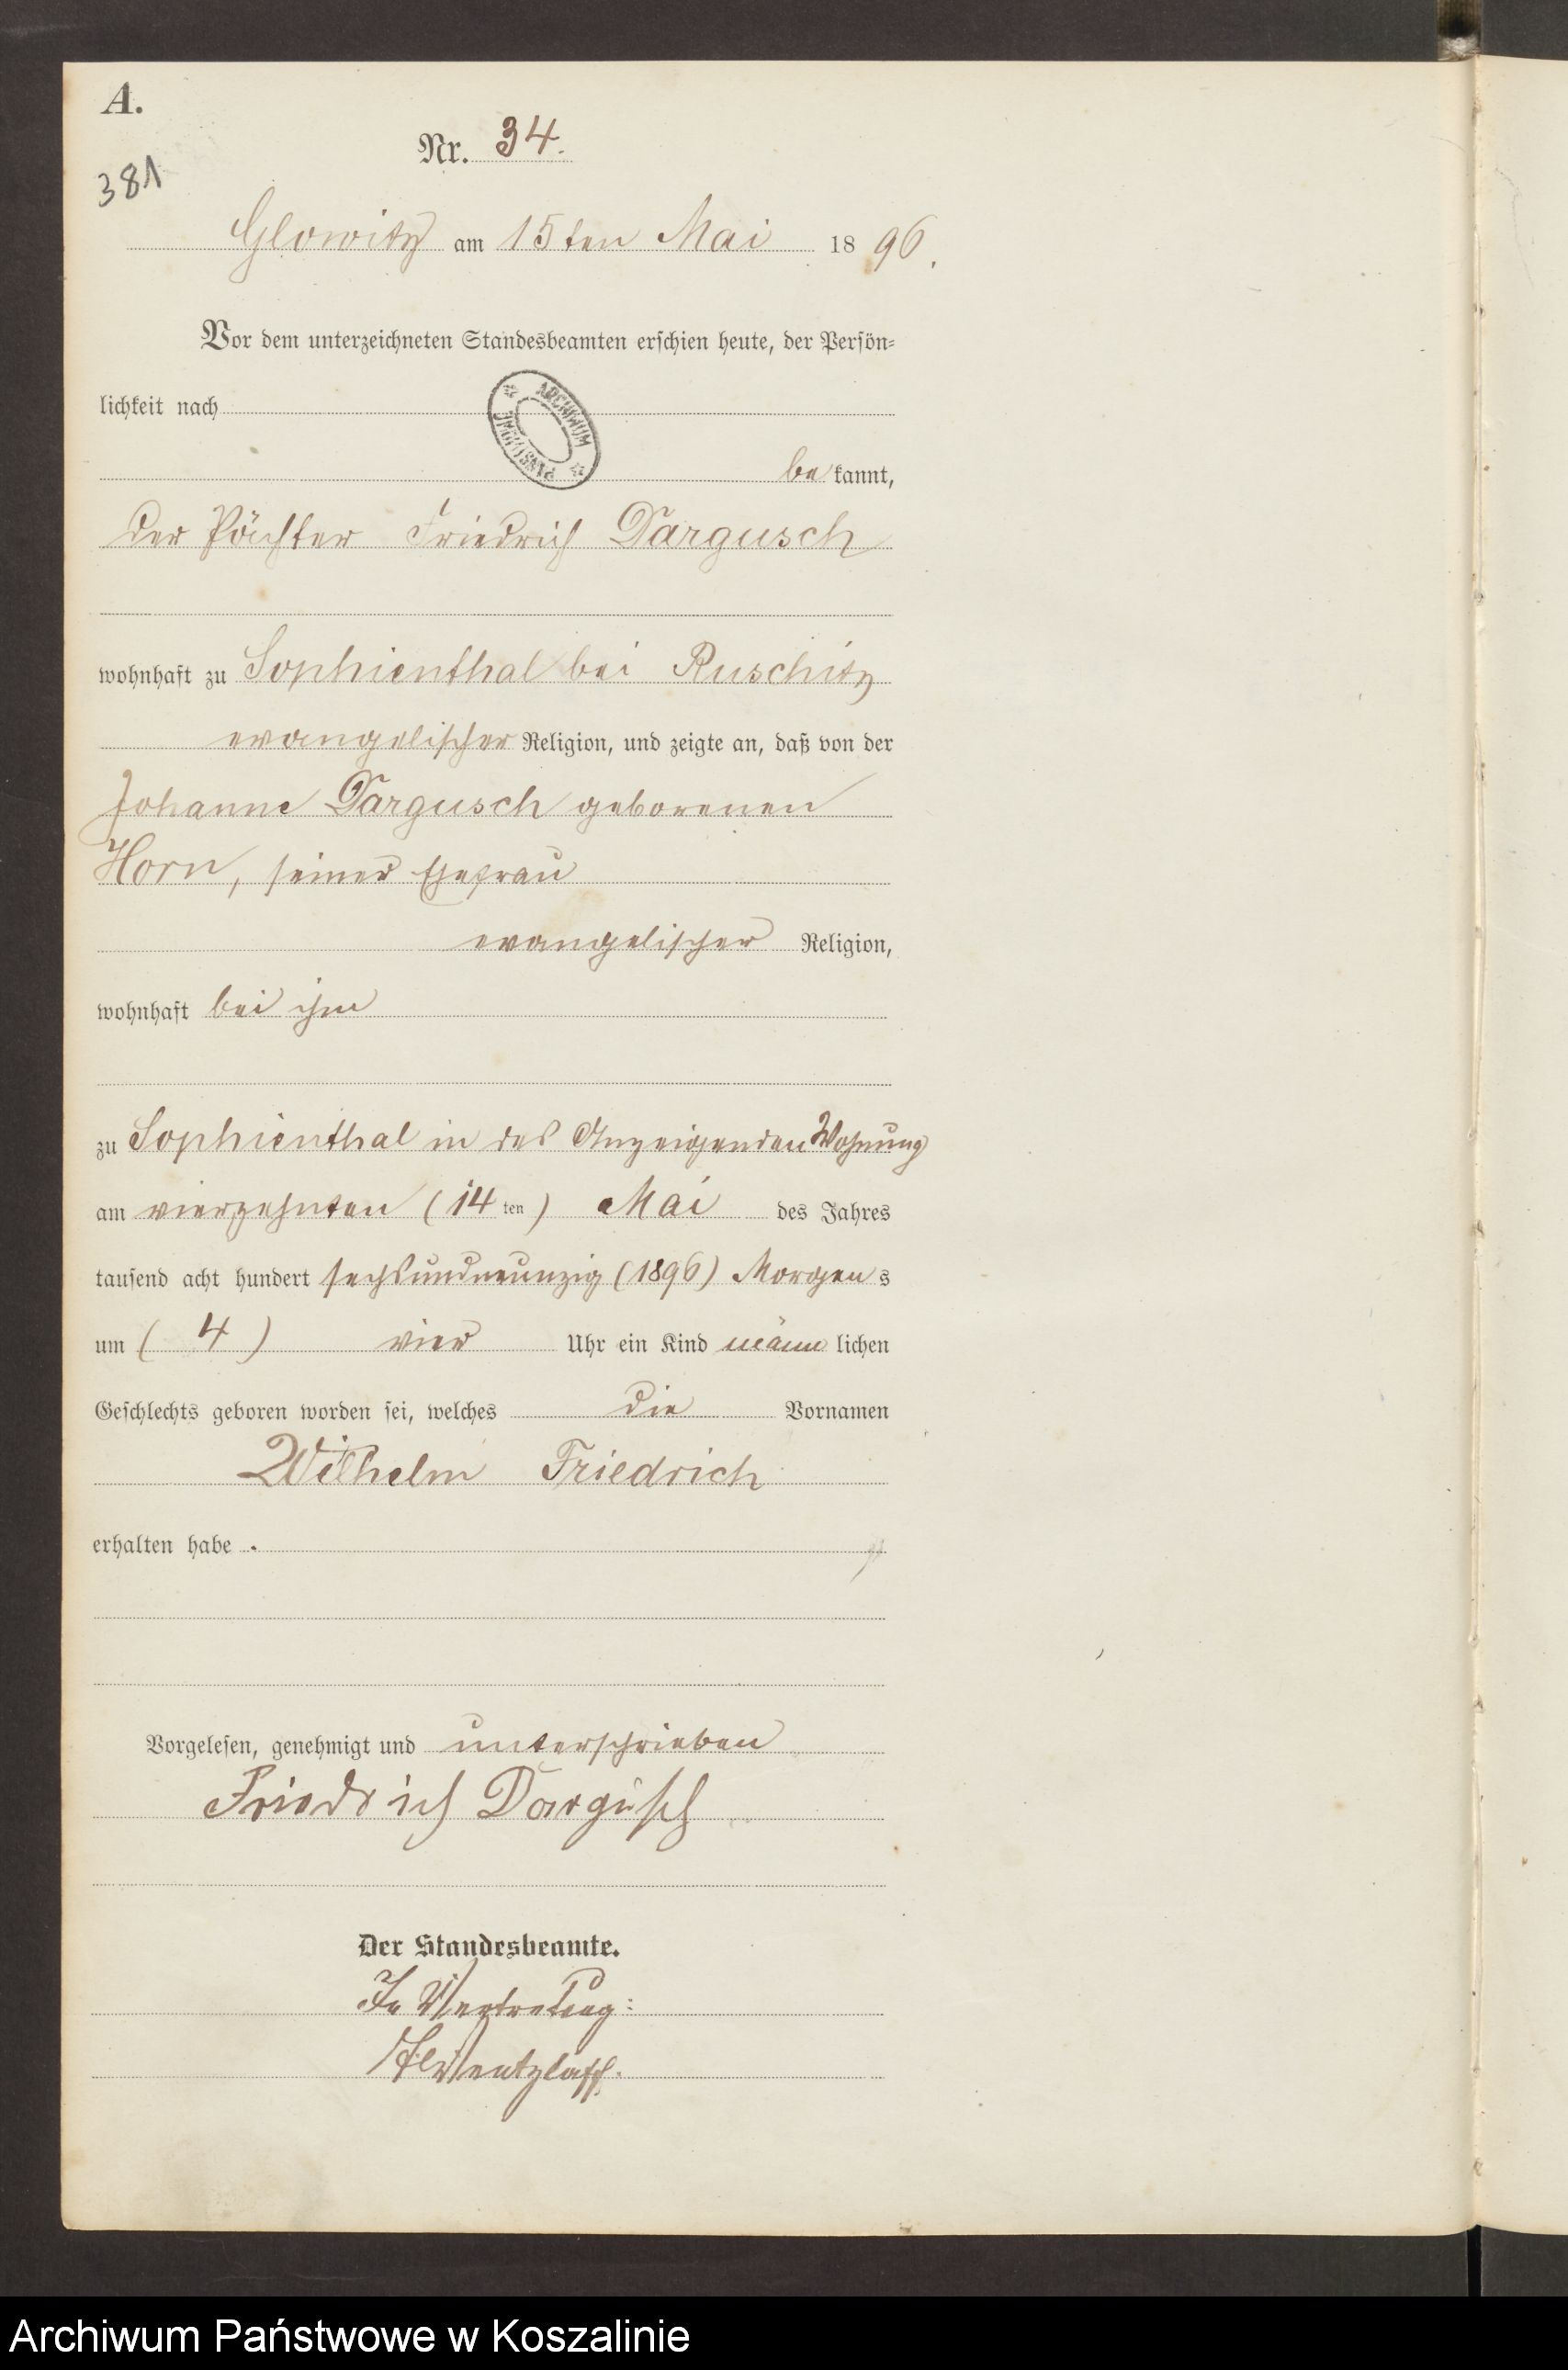 A.
Nr. 34.
381
Glowitz am 15ten Mai 1896.
Vor dem unterzeichneten Standesbeamten erschien heute, der Persön=
lichkeit nach
ARCHIWUM PAŃSTWOWE
be kannt,
der Pächter Friedrich Dargusch
wohnhaft zu Sophienthal bei Ruschitz
evangelischer Religion, und zeigte an, daß von der
Johanne Dargusch geborenen
Horn, seiner Ehefrau
evangelischer Religion,
wohnhaft bei ihm
zu Sophienthal in des Anzeigenden Wohnung
am vierzehnten (14 ten) Mai des Jahres
tausend acht hundert sechsundneunzig (1896) Morgen s
um ( 4 ) vier Uhr ein Kind männ lichen
Geschlechts geboren worden sei, welches die Vornamen
Wilhelm Friedrich
erhalten habe .
Vorgelesen, genehmigt und unterschrieben
Friedrich Dargusch
Der Standesbeamte.
In Vertretung:
Archiwum Państwowe w Koszalinie